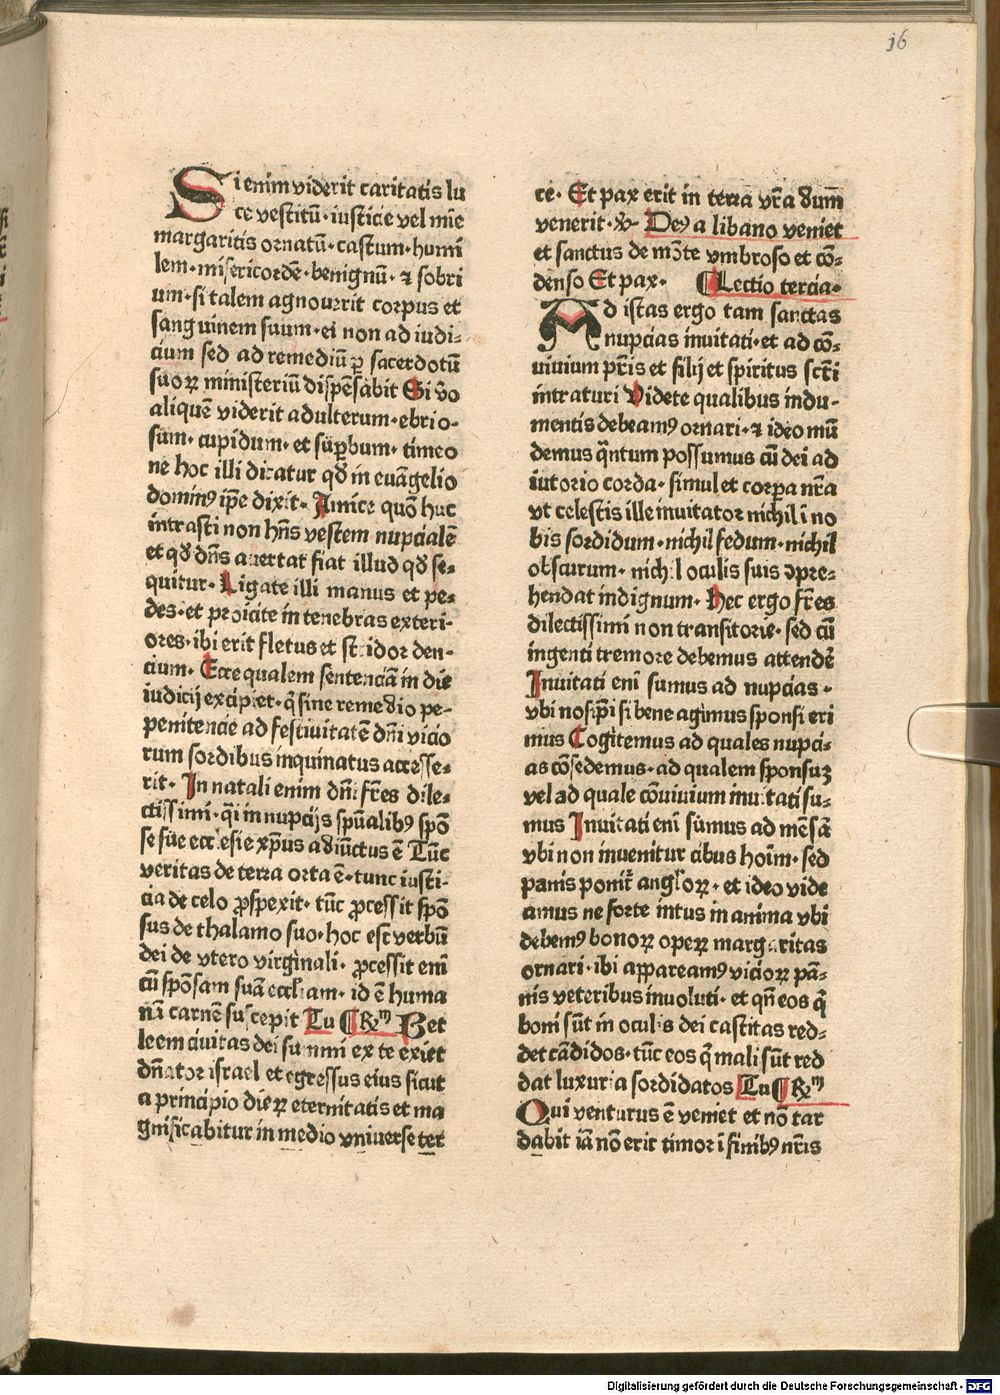 16
Si enim viderit caritatis lu
ce vestitū · iusticie vel mīe
margaritis ornatū · castum · humi
lem · misericordē · benignū · ⁊ sobri
um · si talem agnouerit corpus et
sanguinem suum · ei non ad iudi-
cium sed ad remediū ꝑ sacerdotū
suoꝝ ministeriū dispēsabit Si v̄o
aliquē viderit adulterum · ebrio-
sum · cupidum · et suꝑbum · timeo
ne hoc illi dicatur qd̄ in euāgelio
dominꝰ ip̄e dixit · Amice quō huc
intrasti non hn̄s vestem nupcialē
et qd̄ dn̄s auertat fiat illud qd̄ se-
quitur · Ligate illi manus et pe-
des · et proicite in tenebras exteri-
ores · ibi erit fletus et stridor den-
cium · Ecce qualem sentenciā in die
iudicij excipiet · q̄ sine remedio pe-
penitencie ad festiuitatē dn̄i vicio
rum sordibus inquinatus accesse-
rit · In natali enim dn̄i fr̄es dile-
ctissimi · q̄i in nupcijs sp̄ualibꝰ spō
se sue ecclesie xp̄us adiūctus ē Tūc
veritas de terra orta ē · tunc iusti-
cia de celo ꝓspexit · tūc ꝓcessit spō
sus de thalamo suo · hoc est verbū
dei de vtero virginali · ꝓcessit enī
cū spōsam suā eccl̄iam · id ē huma
nā carnē suscepit Tu ¶ R̄m Bet
leem ciuitas dei summi ex te exiet
dn̄ator israel et egressus eius sicut
a principio dieꝝ eternitatis et ma
gnificabitur in medio vniuerse ter
re · Et pax erit in terra vr̄a dum̄
venerit · ℣ · Deꝰ a libano veniet
et sanctus de mōte vmbroso et cō-
denso Et pax · ¶ Lectio tercia ·
Ad istas ergo tam sanctas
nupcias inuitati · et ad cō-
uiuium pr̄is et filij et spiritus sc̄ti
intraturi Videte qualibus indu-
mentis debeamꝰ ornari · ⁊ ideo mū
demus q̄ntum possumus cū dei ad
iutorio corda · simul et corꝑa nr̄a
vt celestis ille inuitator nichil ī no
bis sordidum · nichil fedum · nichil
obscurum · nichil oculis suis ↄpre-
hendat indignum · Hec ergo fr̄es
dilectissimi non transitorie · sed cū
ingenti tremore debemus attendē
Inuitati enī sumus ad nupcias ·
vbi nos ip̄i si bene agimus sponsi eri
mus Cogitemus ad quales nupci-
as cōsedemus · ad qualem sponsuꝫ
vel ad quale cōuiuium inuitati su-
mus Inuitati enī sumus ad mēsā
vbi non inuenitur cibus hoīm · sed
panis ponit̄ angl̄oꝝ · et ideo vide
amus ne forte intus in anima vbi
debemꝰ bonoꝝ opeꝝ margaritas
ornari · ibi appareamꝰ vicioꝝ pā-
nis veteribus inuoluti · et qn̄ eos q̄
boni sūt in oculis dei castitas red-
det cādidos · tūc eos q̄ mali sūt red
dat luxuria sordidatos Tu ¶ R̄m
Qui venturus ē veniet et nō tar
dabit iā nō erit timor ī finibꝰ nr̄is
Digitalisierung gefördert durch die Deutsche Forschungsgemeinschaft - DFG